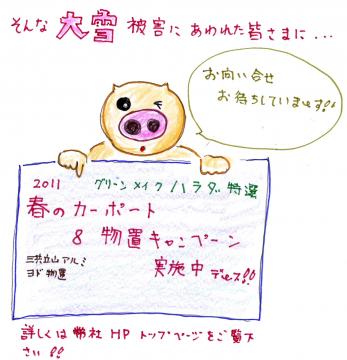 そんな 大雪 被害に あわれた 皆さまに...
お向い合せ
お待ちしていまーす!!
2011 グリーンメイク ハラダ 特選
春の カーポート
& 物置 キャンペーン
三共立山アルミ
ヨド物置
実施中 デェース!!
詳しくは 弊社 HP トップページを ご覧下
さい!!